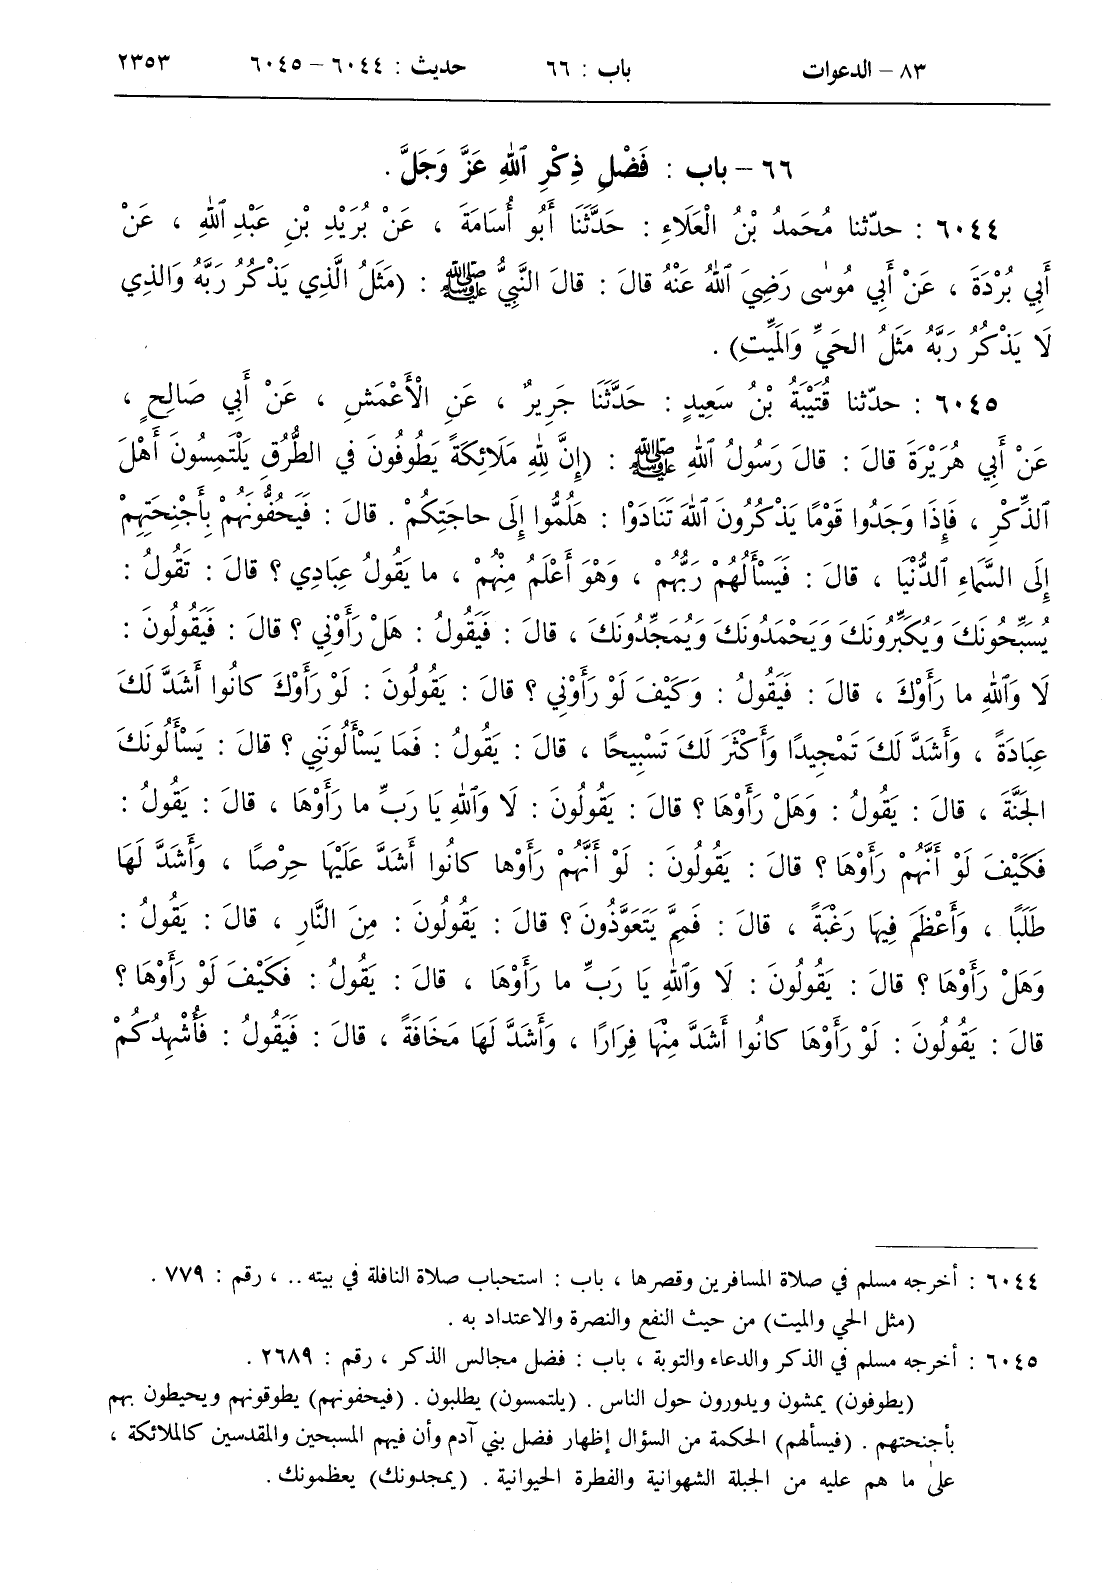 ٨٣ – الدعوات باب : ٦٦ حديث : ٦٠٤٤ – ٦٠٤٥ ٢٣٥٣
٦٦ – باب : فَضْلِ ذِكْرِ ٱللهِ عَزَّ وَجَلَّ .
٦٠٤٤ : حدّثنا مُحَمدُ بْنُ الْعَلَاءِ : حَدَّثَنَا أَبُو أُسَامَةَ ، عَنْ بُرَيْدِ بْنِ عَبْدِ ٱللهِ ، عَنْ
أَبِي بُرْدَةَ ، عَنْ أَبِي مُوسٰى رَضِيَ ٱللهُ عَنْهُ قالَ : قالَ النَّبِيُّ ﷺ : (مَثَلُ الَّذِي يَذْكُرُ رَبَّهُ وَالذِي
لَا يَذْكُرُ رَبَّهُ مَثَلُ الحَيِّ وَالمَيِّتِ) .
٦٠٤٥ : حدّثنا قُتَيْبَةُ بْنُ سَعِيدٍ : حَدَّثَنَا جَرِيرٌ ، عَنِ الْأَعْمَشِ ، عَنْ أَبِي صَالِحٍ ،
عَنْ أَبِي هُرَيْرَةَ قالَ : قالَ رَسُولُ ٱللهِ ﷺ : (إِنَّ لِلهِ مَلَائِكَةً يَطُوفُونَ في الطُّرُقِ يَلْتَمِسُونَ أَهْلَ
ٱلذِّكْرِ ، فَإِذَا وَجَدُوا قَوْمًا يَذْكُرُونَ ٱللهَ تَنَادَوْا : هَلُمُّوا إِلَى حاجَتِكُمْ . قالَ : فَيَحُفُّونَهُمْ بِأَجْنِحَتِهِمْ
إِلَى السَّمَاءِ ٱلدُّنْيَا ، قالَ : فَيَسْأَلُهُمْ رَبُّهُمْ ، وَهْوَ أَعْلَمُ مِنْهُمْ ، ما يَقُولُ عِبَادِي ؟ قالَ : تَقُولُ :
يُسَبِّحُونَكَ وَيُكَبِّرُونَكَ وَيَحْمَدُونَكَ وَيُمَجِّدُونَكَ ، قالَ : فَيَقُولُ : هَلْ رَأَوْنِي ؟ قالَ : فَيَقُولُونَ :
لَا وَٱللهِ ما رَأَوْكَ ، قالَ : فَيَقُولُ : وَكَيْفَ لَوْ رَأَوْنِي ؟ قالَ : يَقُولُونَ : لَوْ رَأَوْكَ كانُوا أَشَدَّ لَكَ
عِبَادَةً ، وَأَشَدَّ لَكَ تَمْجِيدًا وَأَكْثَرَ لَكَ تَسْبِيحًا ، قالَ : يَقُولُ : فَمَا يَسْأَلُونَنِي ؟ قالَ : يَسْأَلُونَكَ
الجَنَّةَ ، قالَ : يَقُولُ : وَهَلْ رَأَوْهَا ؟ قالَ : يَقُولُونَ : لَا وَٱللهِ يَا رَبِّ ما رَأَوْهَا ، قالَ : يَقُولُ :
فَكَيْفَ لَوْ أَنَّهُمْ رَأَوْهَا ؟ قالَ : يَقُولُونَ : لَوْ أَنَّهُمْ رَأَوْها كانُوا أَشَدَّ عَلَيْهَا حِرْصًا ، وَأَشَدَّ لَهَا
طَلَبًا ، وَأَعْظَمَ فِيهَا رَغْبَةً ، قالَ : فَمِمَّ يَتَعَوَّذُونَ ؟ قالَ : يَقُولُونَ : مِنَ النَّارِ ، قالَ : يَقُولُ :
وَهَلْ رَأَوْهَا ؟ قالَ : يَقُولُونَ : لَا وَٱللهِ يَا رَبِّ ما رَأَوْهَا ، قالَ : يَقُولُ : فَكَيْفَ لَوْ رَأَوْهَا ؟
قالَ : يَقُولُونَ : لَوْ رَأَوْهَا كانُوا أَشَدَّ مِنْهَا فِرَارًا ، وَأَشَدَّ لَهَا مَخَافَةً ، قالَ : فَيَقُولُ : فَأُشْهِدُكُمْ
٦٠٤٤ : أخرجه مسلم في صلاة المسافرين وقصرها ، باب : استحباب صلاة النافلة في بيته .. ، رقم : ٧٧٩ .
(مثل الحي والميت) من حيث النفع والنصرة والاعتداد به .
٦٠٤٥ : أخرجه مسلم في الذكر والدعاء والتوبة ، باب : فضل مجالس الذكر ، رقم : ٢٦٨٩ .
(يطوفون) يمشون ويدورون حول الناس . (يلتمسون) يطلبون . (فيحفونهم) يطوقونهم ويحيطون بهم
بأجنحتهم . (فيسألهم) الحكمة من السؤال إظهار فضل بني آدم وأن فيهم المسبحين والمقدسين كالملائكة ،
علىٰ ما هم عليه من الجبلة الشهوانية والفطرة الحيوانية . (يمجدونك) يعظمونك .